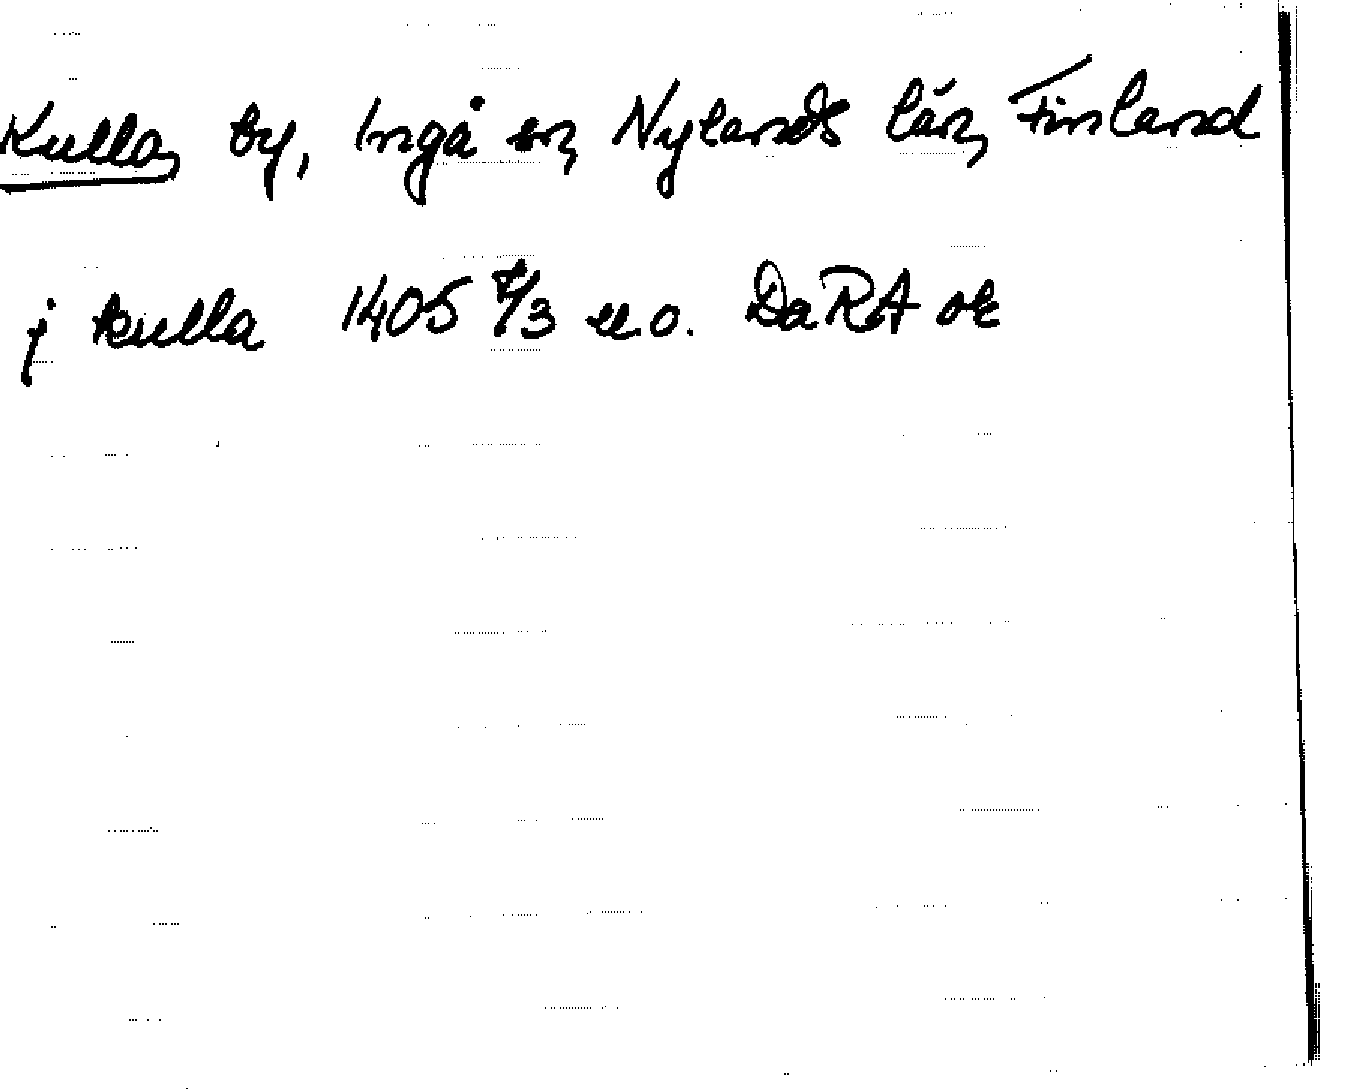 Kulla, by, Ingå sn, Nylands län, Finland
j kulla 1405 8/3 u.o. DaRA or